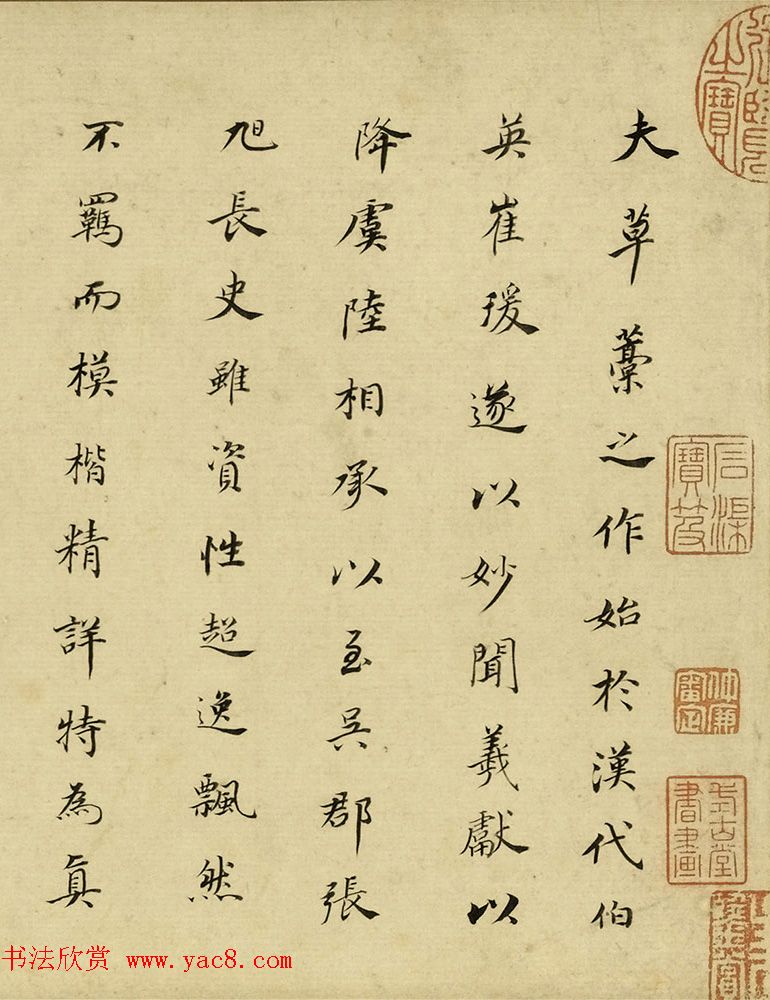 夫草藁之作始於漢代伯
英崔瑗遂以妙聞羲獻以
降虞陸相承以至吳郡張
旭長史雖資性超逸飄然
不羈而模楷精詳特為真
石渠寶笈
考古堂書畫
书法欣赏 www.yac8.com